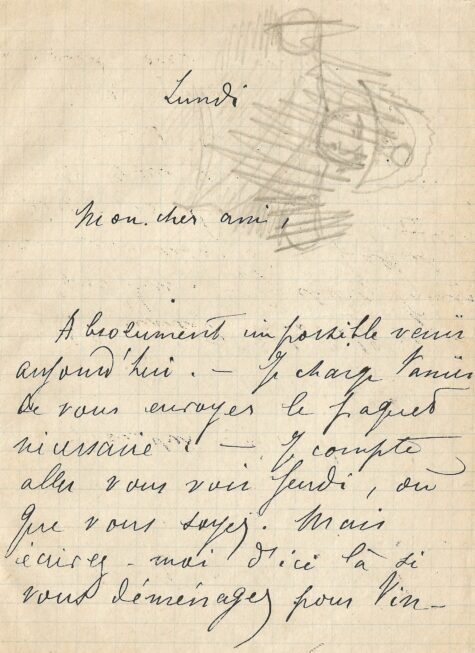 Lundi
Mon cher ami,
Absolument impossible venir
aujourd'hui. — Je charge Vanier
de vous envoyer le paquet
nécessaire. — Je compte
aller vous voir Jeudi, où
que vous soyez. Mais
écirez-moi d'ici là si
vous déménagez pour Vin-